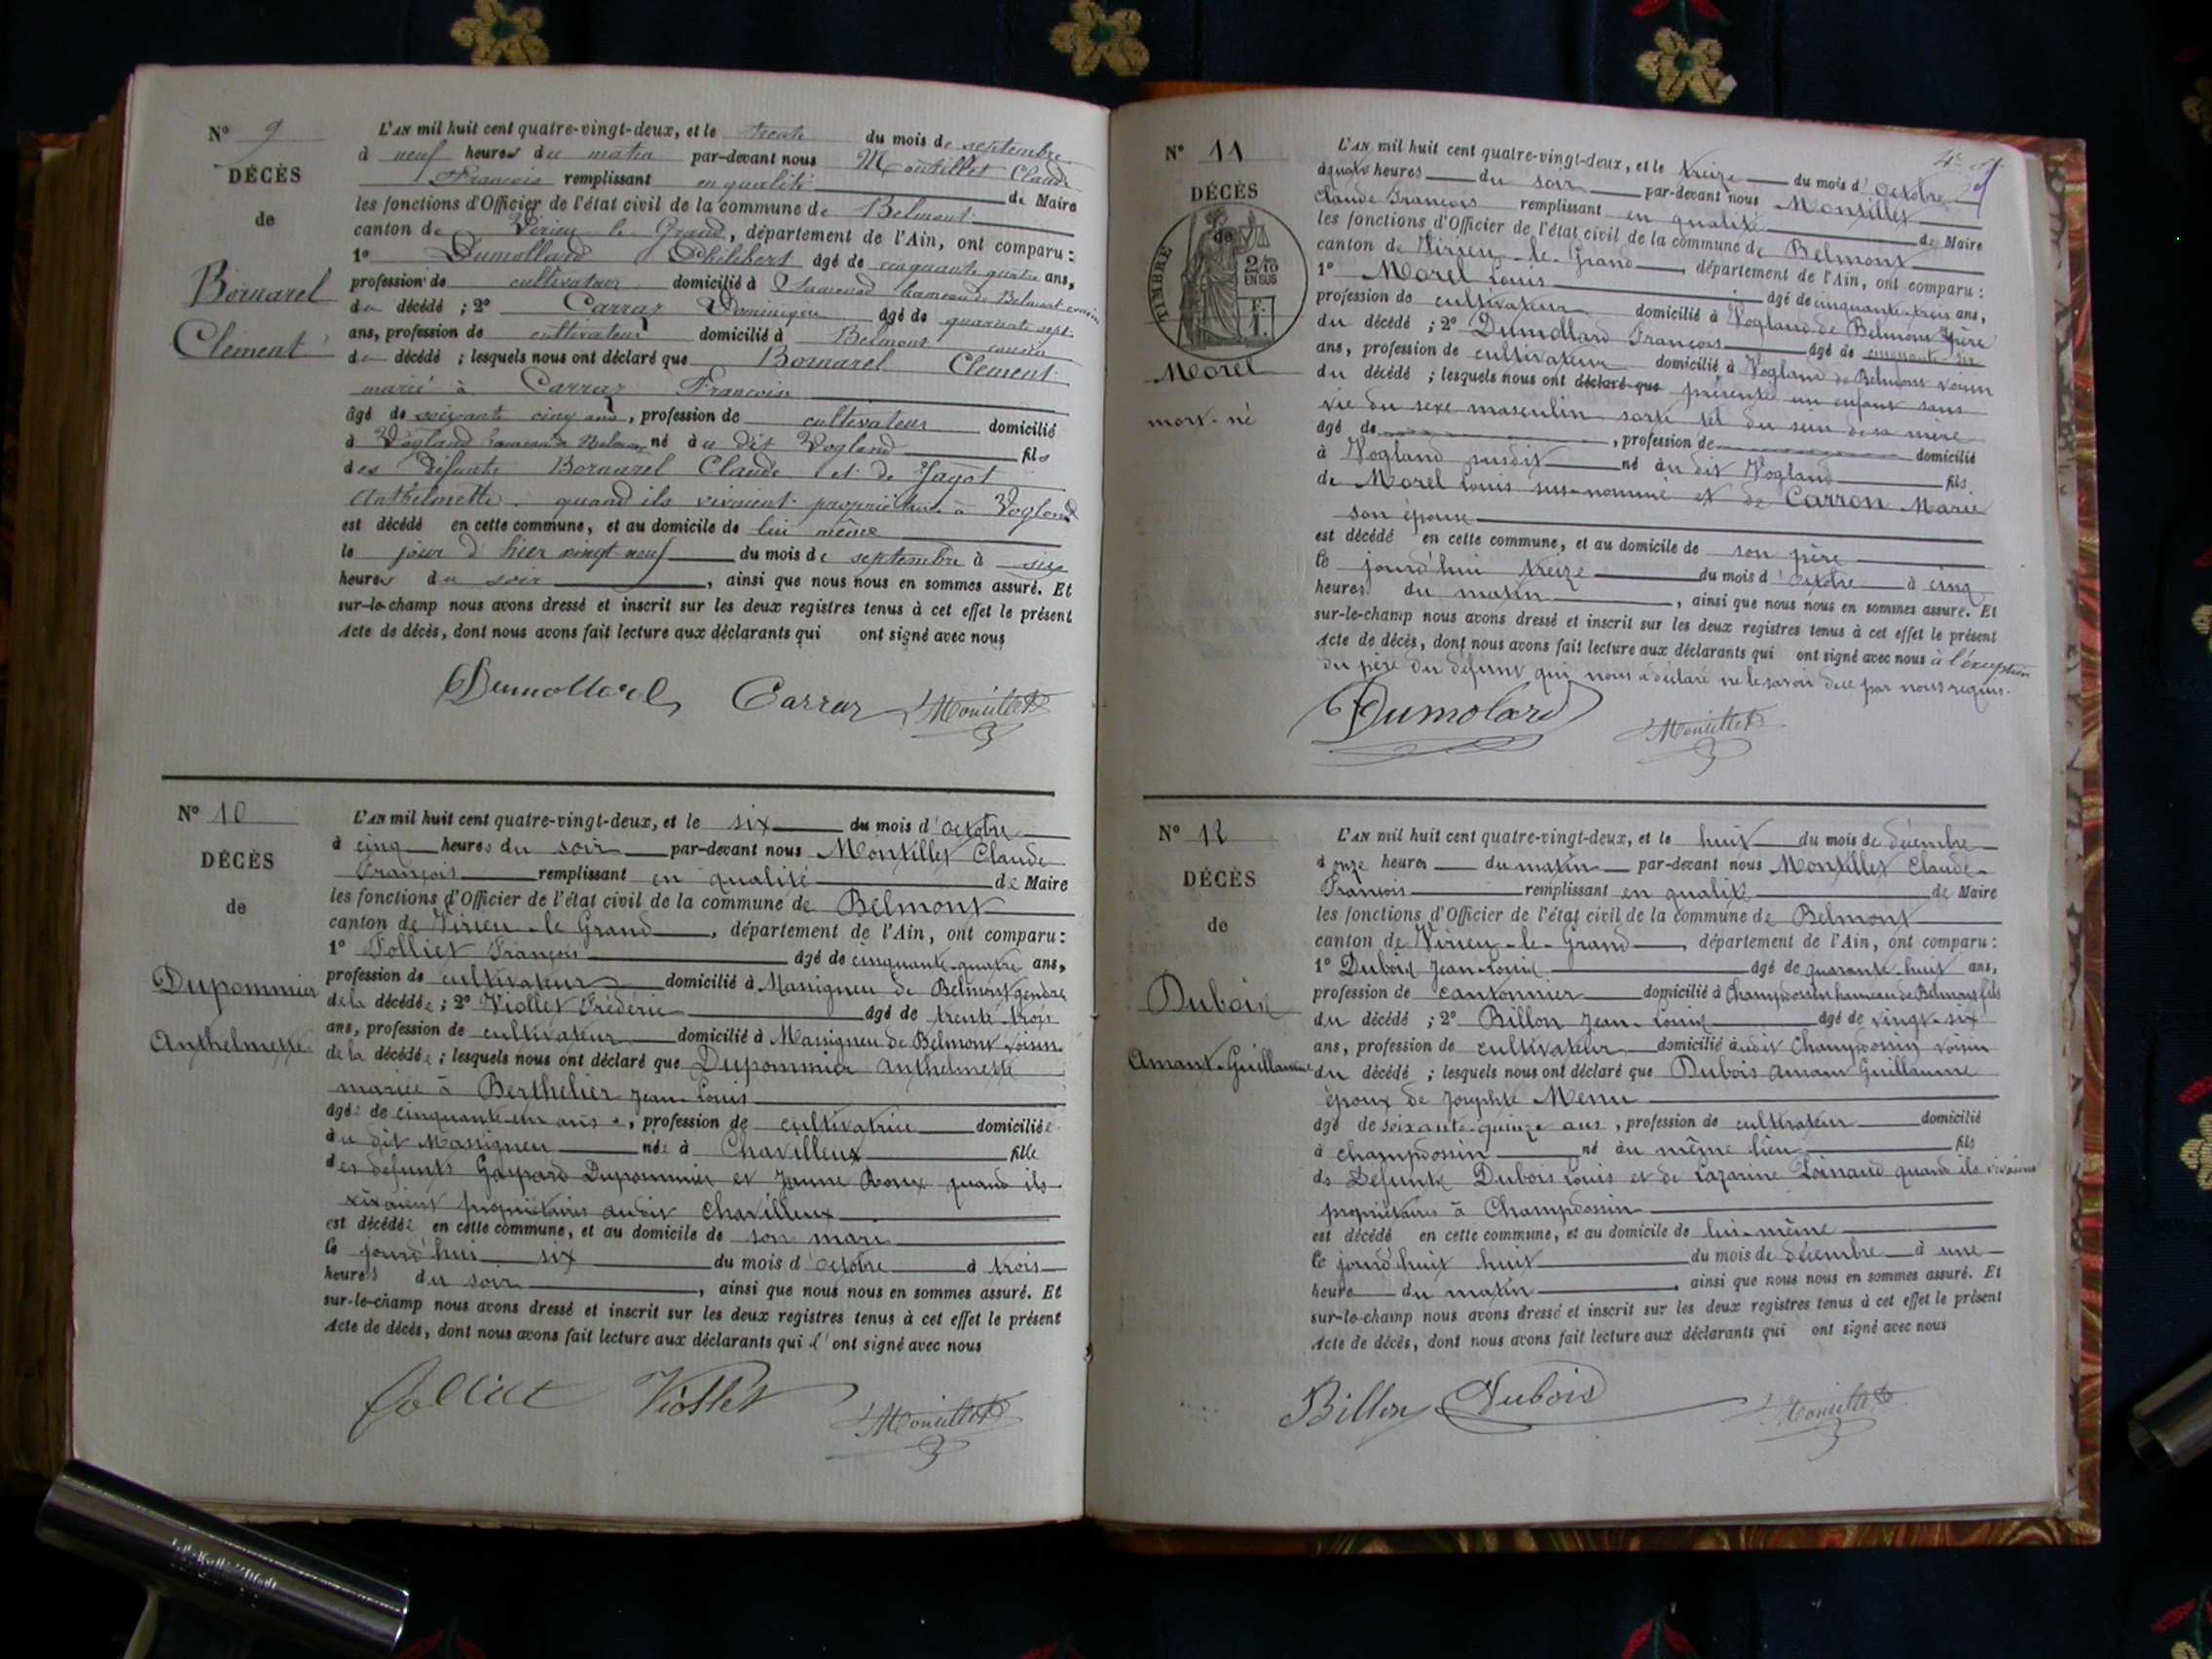 N° 9
DÉCÈS
de
Bornarel
Clément
L'AN mil huit cent quatre-vingt-deux, et le trente du mois de septembre
à neuf heures du matin par-devant nous Montillet Claude
François remplissant en qualité de Maire
les fonctions d'Officier de l'état civil de la commune de Belmont
canton de Virieu le Grand, département de l'Ain, ont comparu :
1° Dumollard Philibert âgé de cinquante quatre ans,
profession de cultivateur domicilié à hameau de Belmont cousin
du décédé ; 2° Carraz Dominique âgé de quarante sept
ans, profession de cultivateur domicilié à Belmont cousin
du décédé ; lesquels nous ont déclaré que Bornarel Clément
marié à Carraz Françoise
âgé de soixante cinq ans, profession de cultivateur domicilié
à Vogland hameau de Belmont né au dit Vogland fils
des défunts Bornarel Claude et de Jagot
Anthelmette quand ils vivaient propriétaires à Vogland
est décédé en cette commune, et au domicile de lui même
le jour d'hier vingt-neuf du mois de septembre à six
heures du soir, ainsi que nous nous en sommes assuré. Et
sur-le-champ nous avons dressé et inscrit sur les deux registres tenus à cet effet le présent
Acte de décès, dont nous avons fait lecture aux déclarants qui ont signé avec nous
Dumollard Carraz Montillet
N° 10
DÉCÈS
de
Dupommier
Anthelmette
L'AN mil huit cent quatre-vingt-deux, et le six du mois d'octobre
à cinq heures du soir par-devant nous Montillet Claude
François remplissant en qualité de Maire
les fonctions d'Officier de l'état civil de la commune de Belmont
canton de Virieu-le-Grand, département de l'Ain, ont comparu :
1° Folliet François âgé de cinquante-quatre ans,
profession de cultivateur domicilié à Massigneu de Belmont gendre
de la décédée ; 2° Viollet Frédéric âgé de trente-trois
ans, profession de cultivateur domicilié à Massigneu de Belmont voisin
de la décédée ; lesquels nous ont déclaré que Dupommier Anthelmette
mariée à Berthelier Jean-Louis
âgée de cinquante-un ans, profession de cultivatrice domiciliée
au dit Massigneu née à Chavilleux fille
des défunts Gaspard Dupommier et Jeanne Roux quand ils
vivaient propriétaires audit Chavilleux
est décédée en cette commune, et au domicile de son mari
le jourd'hui six du mois d'octobre à trois
heures du soir, ainsi que nous nous en sommes assuré. Et
sur-le-champ nous avons dressé et inscrit sur les deux registres tenus à cet effet le présent
Acte de décès, dont nous avons fait lecture aux déclarants qui l'ont signé avec nous
Folliet Viollet Montillet
N° 11
DÉCÈS
de
TIMBRE
2/10
EN SUS
Morel
mort-né
L'AN mil huit cent quatre-vingt-deux, et le treize du mois d'octobre
à quatre heures du soir par-devant nous Montillet
Claude François remplissant en qualité de Maire
les fonctions d'Officier de l'état civil de la commune de Belmont
canton de Virieu-le-Grand, département de l'Ain, ont comparu :
1° Morel Louis âgé de cinquante-trois ans,
profession de cultivateur domicilié à Vogland de Belmont père
du décédé ; 2° Dumollard François âgé de cinquante-six
ans, profession de cultivateur domicilié à Vogland de Belmont voisin
du décédé ; lesquels nous ont déclaré que présenté un enfant sans
vie du sexe masculin sorti tel du sein de sa mère
âgé de, profession de domicilié
à Vogland susdit né au dit Vogland fils
de Morel Louis sus-nommé et de Carron Marie
son épouse
est décédé en cette commune, et au domicile de son père
le jourd'hui treize du mois d'octobre à cinq
heures du matin, ainsi que nous nous en sommes assuré. Et
sur-le-champ nous avons dressé et inscrit sur les deux registres tenus à cet effet le présent
Acte de décès, dont nous avons fait lecture aux déclarants qui ont signé avec nous à l'exception
du père du défunt qui nous a déclaré ne le savoir de ce par nous requis.
Dumolard Montillet
N° 12
DÉCÈS
de
Dubois
Amant-Guillaume
L'AN mil huit cent quatre-vingt-deux, et le huit du mois de décembre
à onze heures du matin par-devant nous Montillet Claude-
François remplissant en qualité de Maire
les fonctions d'Officier de l'état civil de la commune de Belmont
canton de Virieu-le-Grand, département de l'Ain, ont comparu :
1° Dubois Jean-Louis âgé de quarante-huit ans,
profession de cantonnier domicilié à Champdossin hameau de Belmont fils
du décédé ; 2° Billon Jean-Louis âgé de vingt-six
ans, profession de cultivateur domicilié audit Champdossin voisin
du décédé ; lesquels nous ont déclaré que Dubois Amant Guillaume
époux de Josephte Menu
âgé de soixante-quinze ans, profession de cultivateur domicilié
à Champdossin né au même lieu fils
de Defunts Dubois Louis et de Lazarine Loinaud quand ils vivaient
propriétaires à Champdossin
est décédé en cette commune, et au domicile de lui-même
le jourd'huit huit du mois de décembre à une
heure du matin, ainsi que nous nous en sommes assuré. Et
sur-le-champ nous avons dressé et inscrit sur les deux registres tenus à cet effet le présent
Acte de décès, dont nous avons fait lecture aux déclarants qui ont signé avec nous
Billon Dubois Montillet